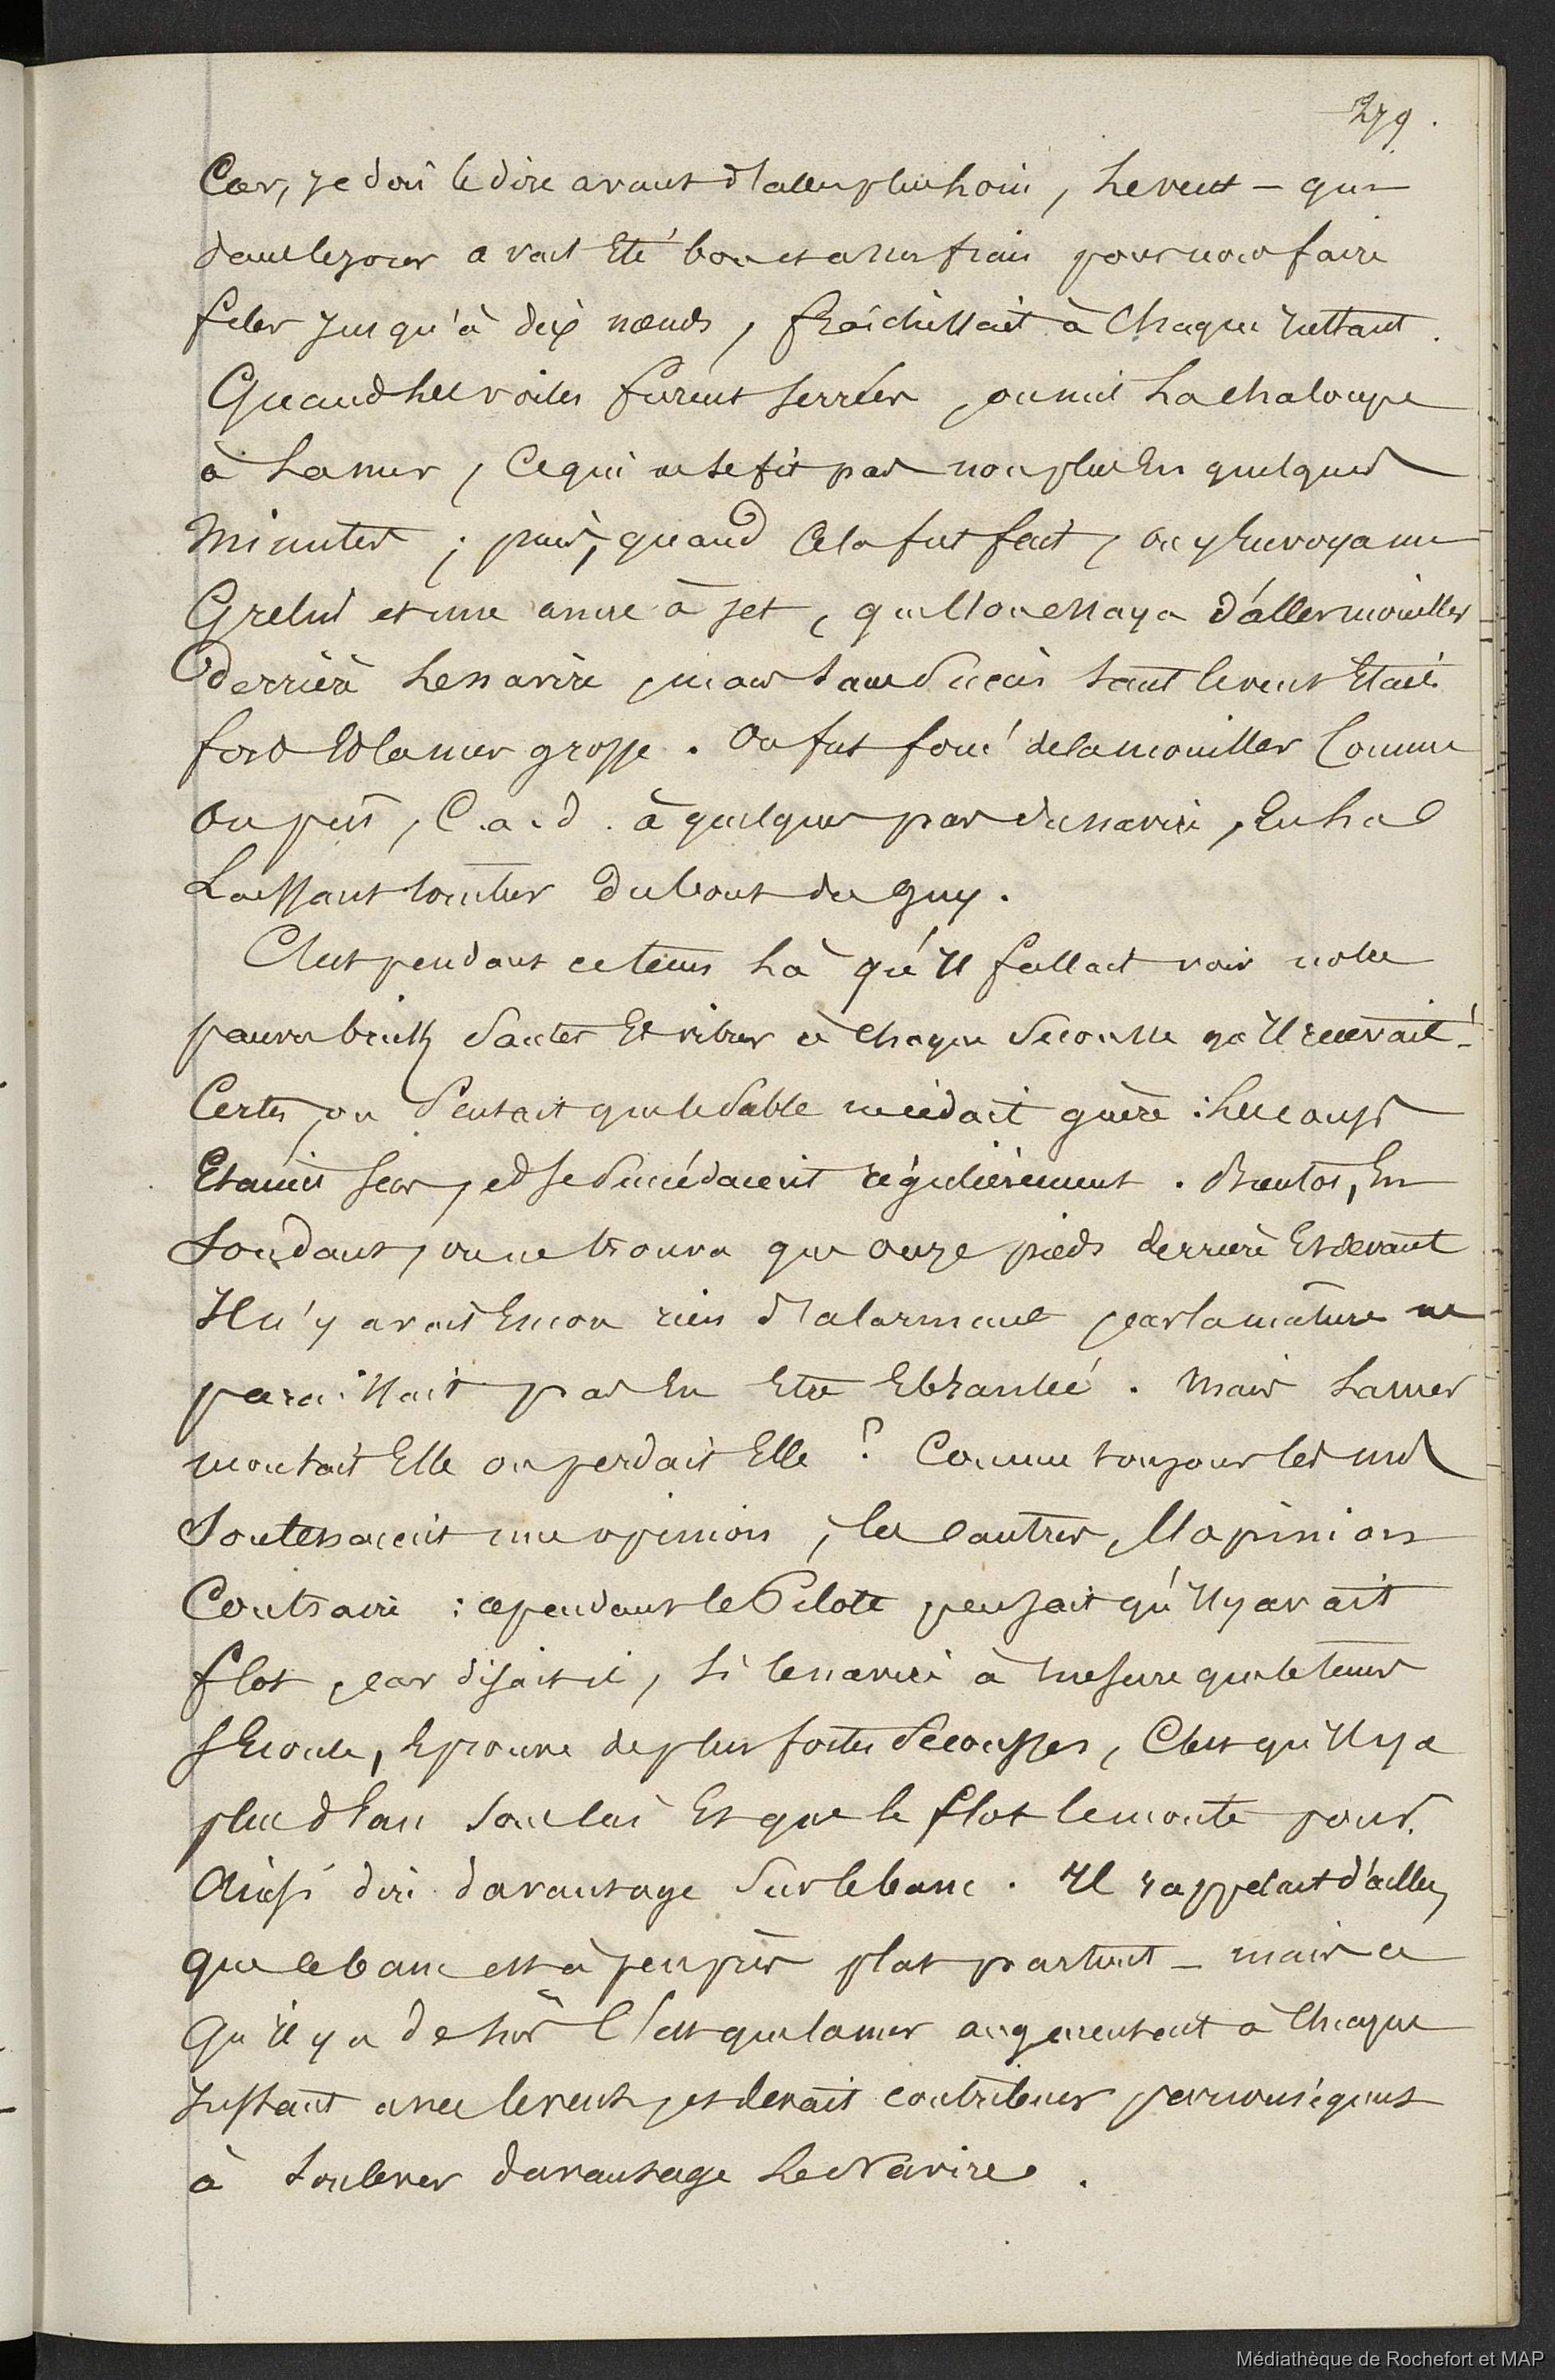 279.
Car, je dois le dire avant d'aller plus loin, le vent – qui
dans le jour avait été bon et assez frais pour nous faire
filer jusqu'à dix nœuds, fraîchissait à chaque instant.
Quand les voiles furent serrées, on mit la chaloupe
à la mer, ce qui ne se fit pas non plus en quelques
minutes ; puis, quand cela fut fait, on y envoya un
Grelin et une ancre à jet, qu'on essaya d'aller mouiller
derrière le navire, mais sans succès tant le vent était
fort et la mer grosse. On fut forcé de la mouiller comme
on put, C.a.d. à quelques pas du navire, en la
laissant tomber du bout du guy.
C'est pendant ce tems là qu'il fallait voir notre
pauvre brick sauter et vibrer à chaque secousse qu'il recevait.
Certes, on sentait que le sable ne cédait guère : les coups
étaient secs, et se succédaient régulièrement. Bientôt, en
sondant, on ne trouva que onze pieds derrière et devant
Il n'y avait encore rien d'alarmant, car la mâture ne
paraissait pas en être ébranlée. Mais la mer
montait elle ou perdait elle ? Comme toujours les uns
soutenaient une opinion, les autres, l'opinion
Contraire : cependant le Pilote pensait qu'il y avait
flot, car disait il, si le navire à mesure que le tems
s'écoule, éprouve de plus fortes secousses, c'est qu'il y a
plus d'eau sous lui et que le flot le monte pour
ainsi dire davantage sur le banc. Il rappelait d'ailleurs
que le banc est à peu près plat partout – mais ce
qu'il y a de sûr c'est que la mer augmentait à chaque
instant avec le vent, et devait contribuer par conséquent
à soulever davantage le Navire.
Médiathèque de Rochefort et MAP